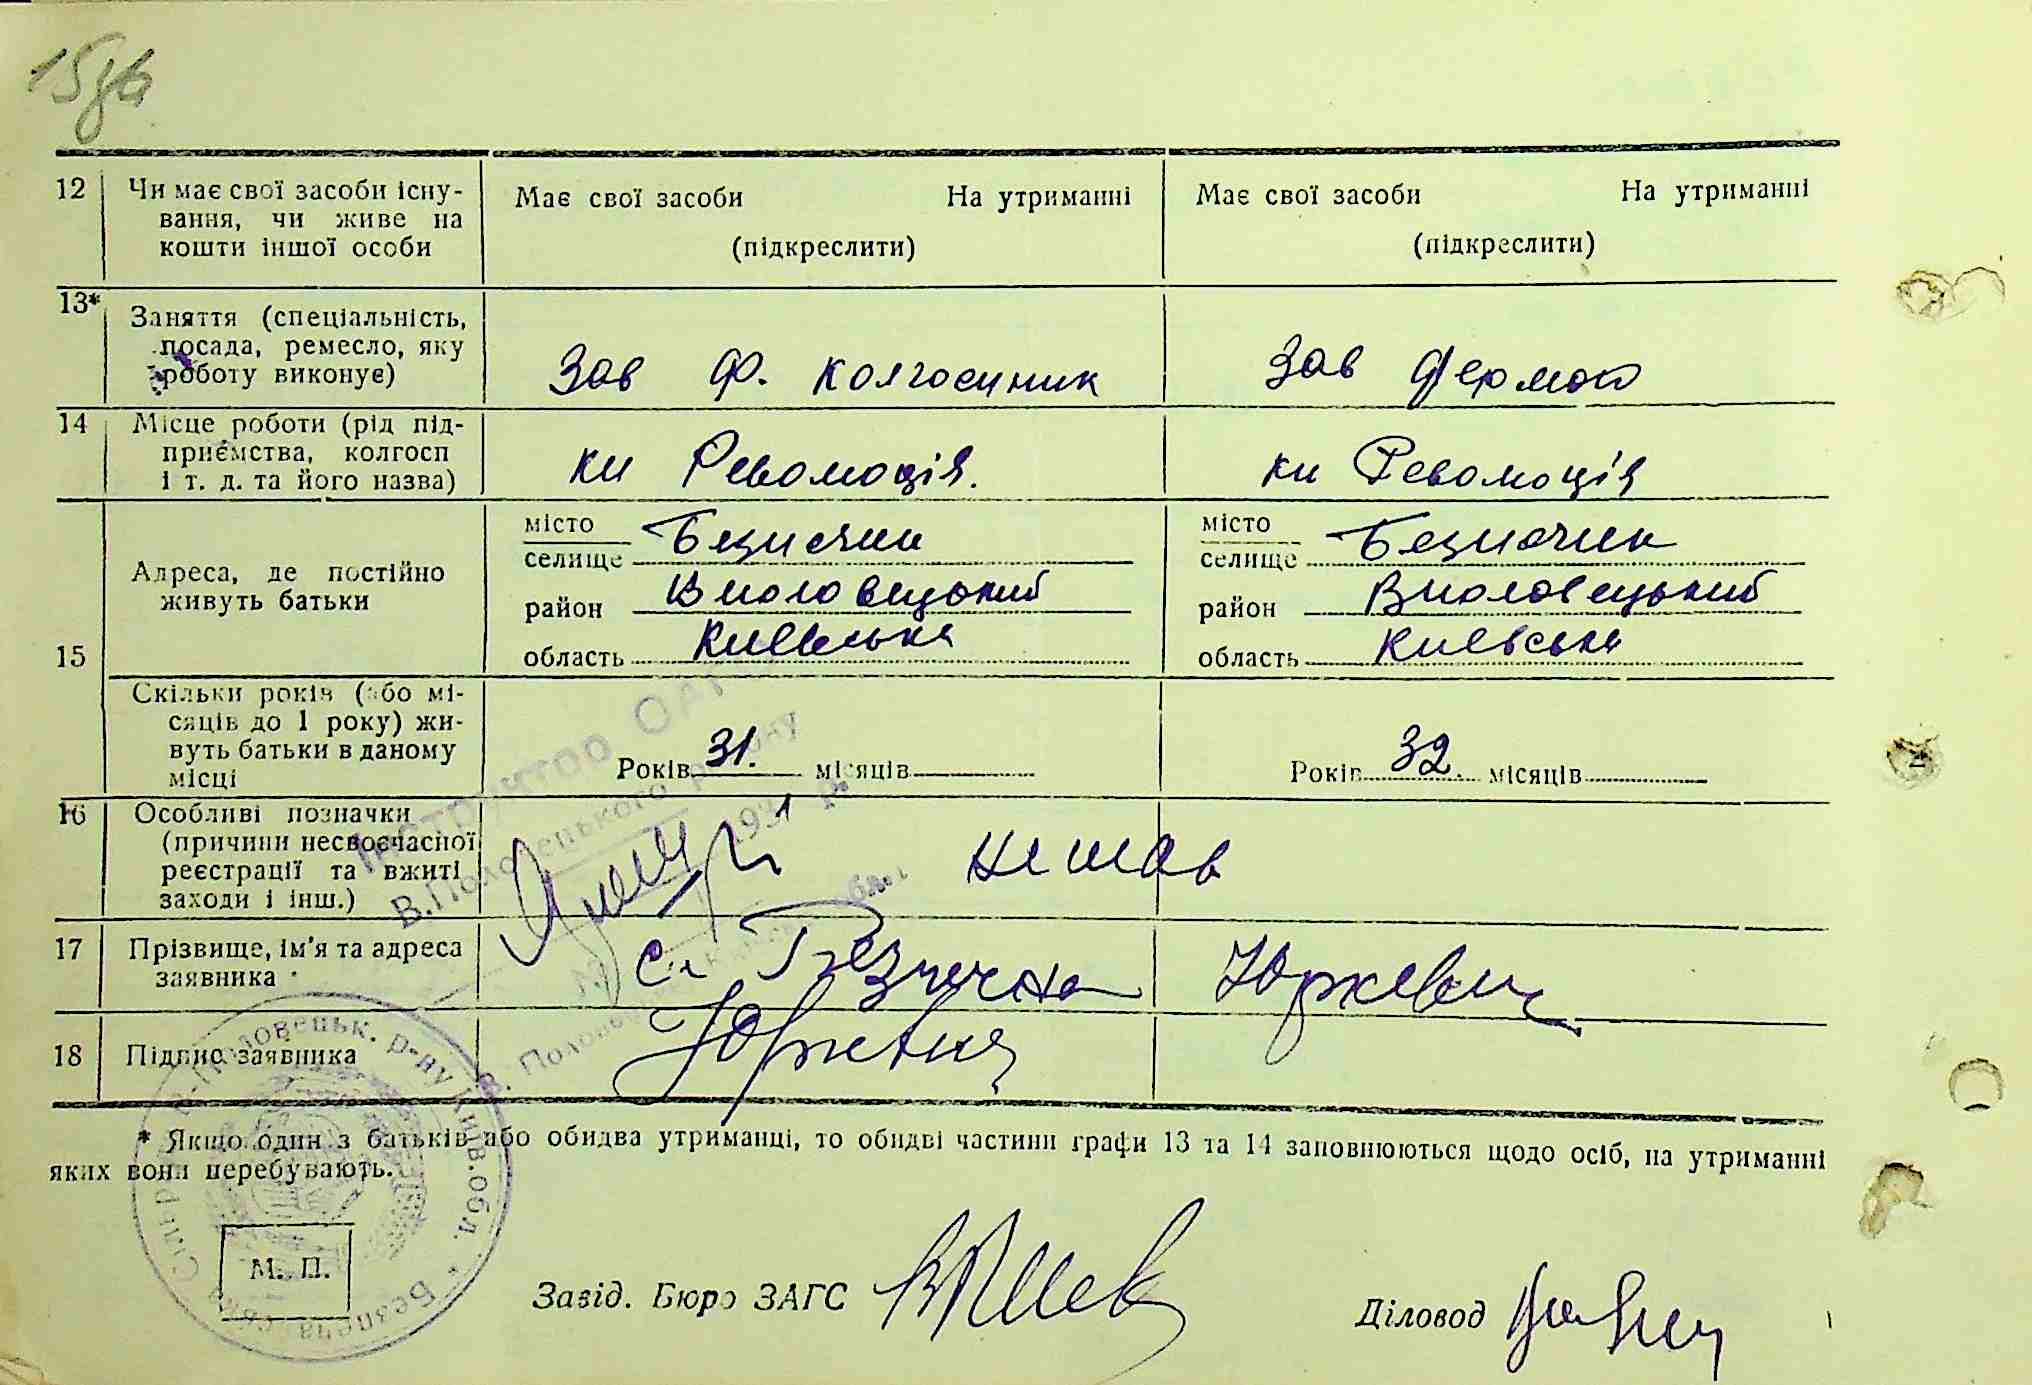 15зв
12 Чи має свої засоби існу-
вання, чи живе на
кошти іншої особи
Має свої засоби На утриманні
(підкреслити)
Має свої засоби На утриманні
(підкреслити)
13* Заняття (спеціальність,
посада, ремесло, яку
роботу виконує)
Зав Ф. колгоспник
Зав Фермою
14 Місце роботи (рід під-
приємства, колгосп
і т. д. та його назва)
Революція.
Революція
15 Адреса, де постійно
живуть батьки
місто
селище Безпечни
район В Половецький
область Киевська
місто
селище Безпечни
район В Половецький
область Киевська
Скільки років (або мі-
сяців до 1 року) жи-
вуть батьки в даному
місці
Років 31. місяців
Років 32. місяців
16 Особливі позначки
(причини несвоєчасної
реєстрації та вжиті
заходи і інш.)
немає
17 Прізвище, ім'я та адреса
заявника
с. Безпечна Юркевич
18 Підпис заявника
Юркевич
* Якщо один з батьків або обидва утриманці, то обидві частини графи 13 та 14 заповнюються щодо осіб, на утриманні
яких вони перебувають.
М. П.
Завід. Бюро ЗАГС
Діловод